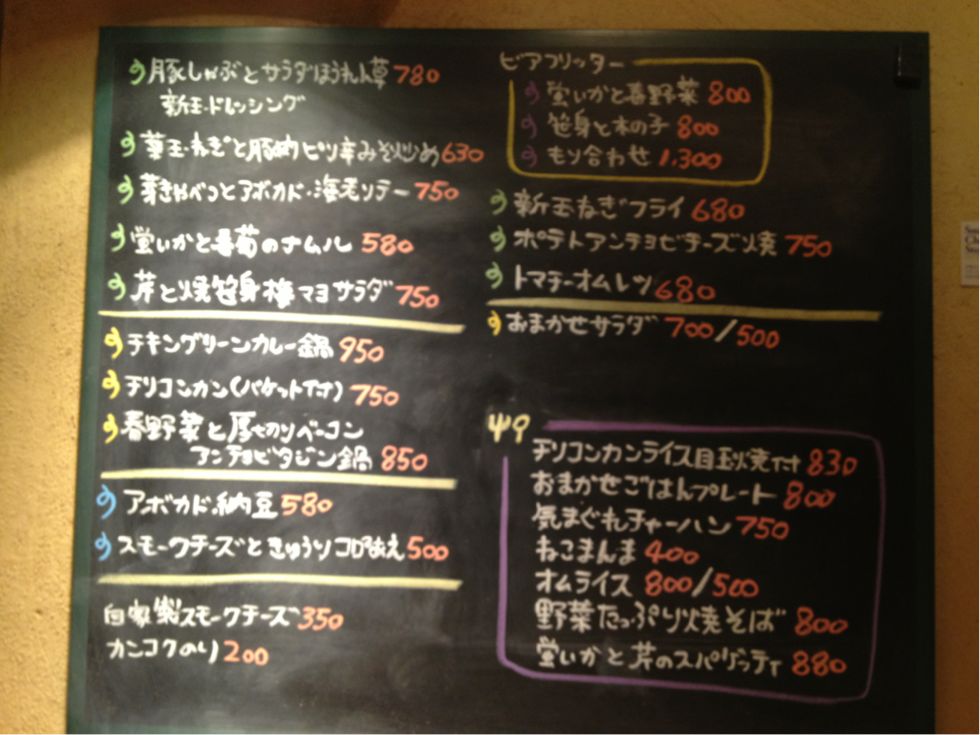 豚しゃぶとサラダほうれん草 780
新玉ドレッシング
葉玉ねぎと豚肉ピリ辛みそ炒め 630
芽きゃべつとアボカド・海老ソテー 750
蛍いかと春菊のナムル 580
芹と焼笹身梅マヨサラダ 750
チキングリーンカレー鍋 950
チリコンカン(バケット付) 750
春野菜と厚切りベーコン
アンチョビタジン鍋 850
アボカド納豆 580
スモークチーズときゅうり 500
自家製スモークチーズ 350
カンコクのり 200
ビアフリッター
蛍いかと春野菜 800
笹身と木の子 800
もり合わせ 1,300
新玉ねぎフライ 680
ポテトアンチョビチーズ焼 750
トマチーオムレツ 680
おまかせサラダ 700/500
チリコンカンライス目玉焼付 830
おまかせごはんプレート 800
気まぐれチャーハン 750
ねこまんま 400
オムライス 800/500
野菜たっぷり焼そば 800
蛍いかと芹のスパゲッティ 880